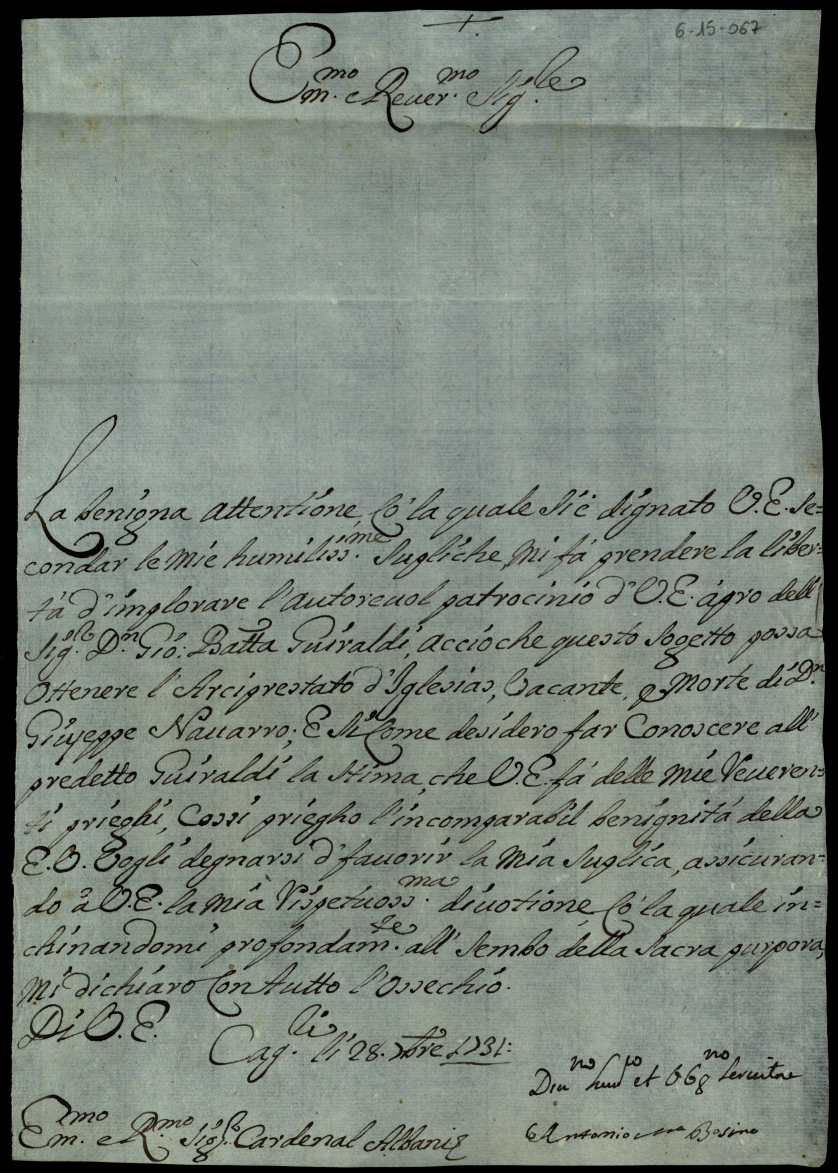 +
6-15-067
Em.mo e Reuer.mo Sig.le
La benigna attentione, Co' la quale Si è dignato V.E. se=
condar le mie humiliss.ime Supliche, Mi fá prendere la liber=
tá d'implorare l'autoreuol patrocinio d'V.E. á pro dell'
Sig.r D.n Gió: Batta Guiraldi, accioche questo Sogetto possa
Ottenere l'Arciprestato d'Iglesias, Vacante, p Morte di D.n
Giuseppe Nauarro; E Si Come desidero far Conoscere all'
predetto Guiraldi la Stima, che V.E. fá delle Mie Veueren=
ti prieghi, Cossi priegho l'incomparabil benignitá della
E.V. Vogli degnarsi d'fauorir la Mia Suplica, assicuran=
do á V.E. la Mia Rispetuoss.ma diuotione, Co' la quale in=
chinandomi profondam.te all' Lembo della Sacra purpora,
Mi dichiaro Con tutto l'Ossechió.
Di V.E.
Cag.li li 28. 7bre 1731:
Diu.mo hum.o et obg.mo seruitore
Antonio Bosino
Em.mo e R.mo Sig.r Cardenal Albani